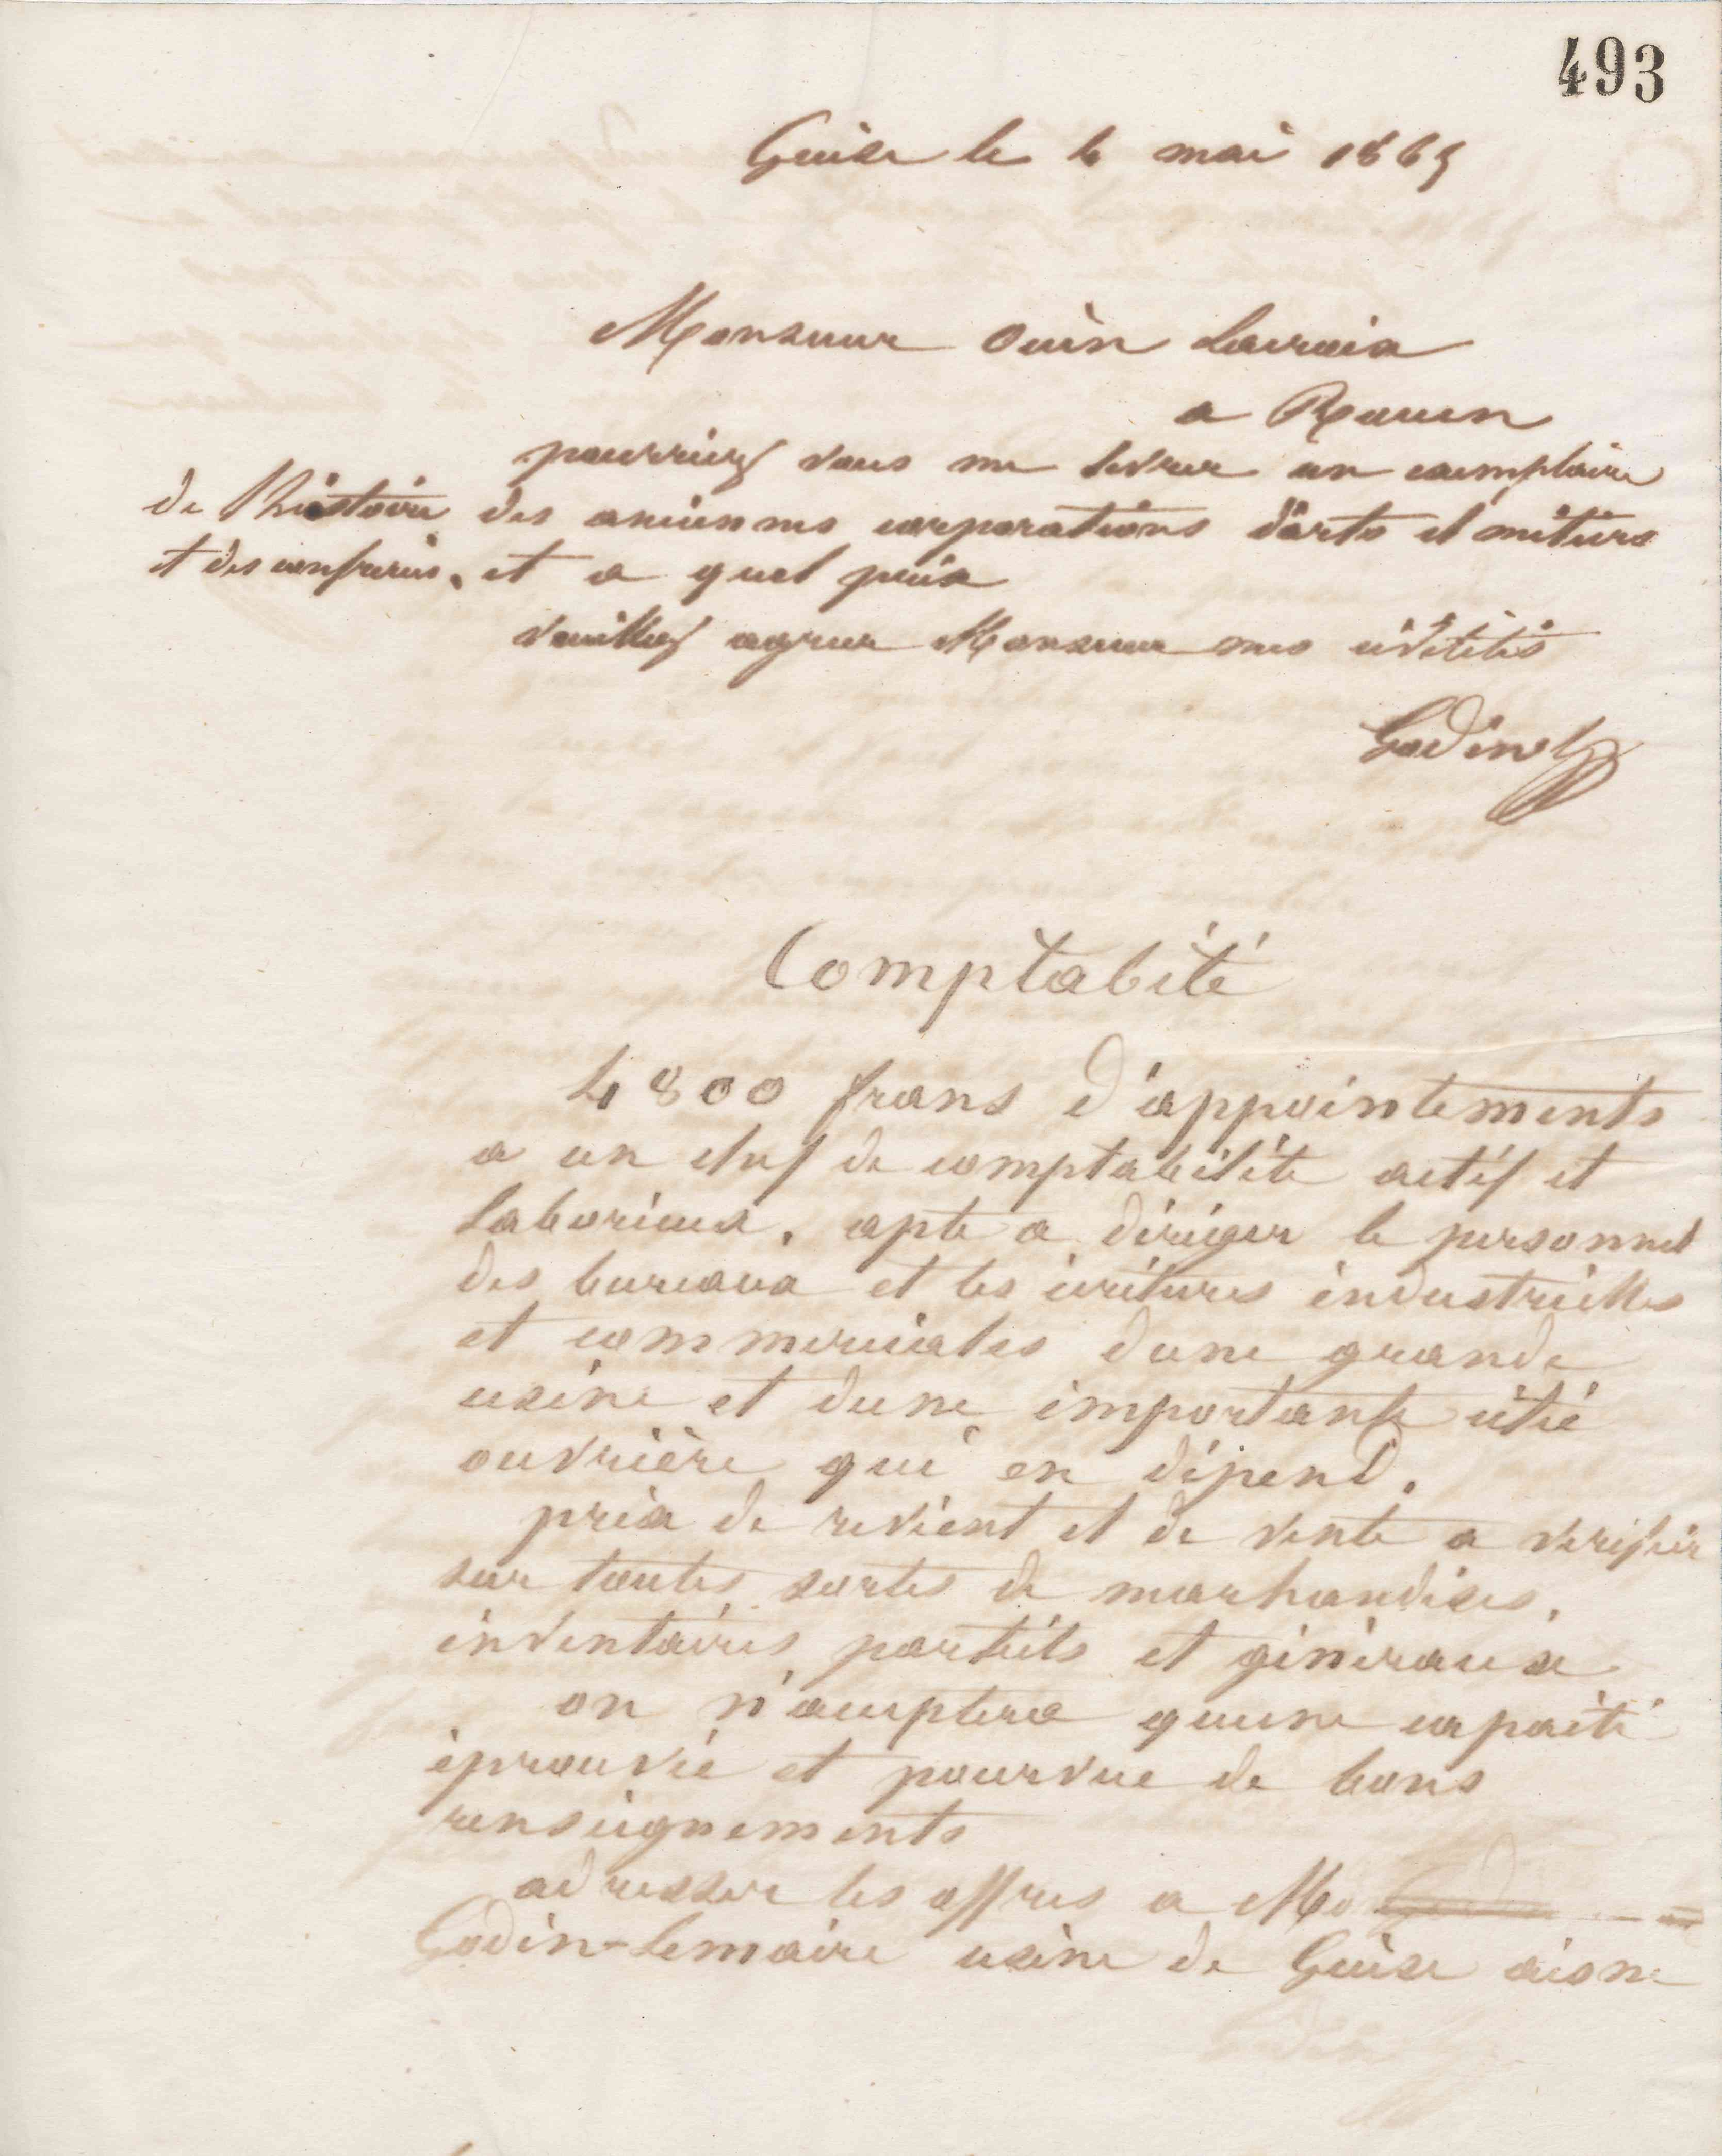 493
Guise le 4 mai 1865
Monsieur Ouin Lacroix
a Rouen
pourriez vous me livrer un exemplaire
de l'histoire des anciennes corporations d'arts et métiers
et des confreries. et a quel prix
veuillez agreer Monsieur mes civilités
Godin
Comptabité
4800 frans d'appointements
a un chef de comptabilité actif et
laborieux. apte a diriger le personnel
des bureaux et les écritures industrielles
et commerciales dune grande
usine et dune importante cité
ouvrière qui en dépend.
prix de revient et de vente a verifier
sur toutes sortes de marhandises.
inventaires partiels et généraux
on n'acceptera quune capacité
éprouvée et pourvue de bons
renseignements
adresser les offres a Mo
Godin-Lemaire usine de Guise aisne